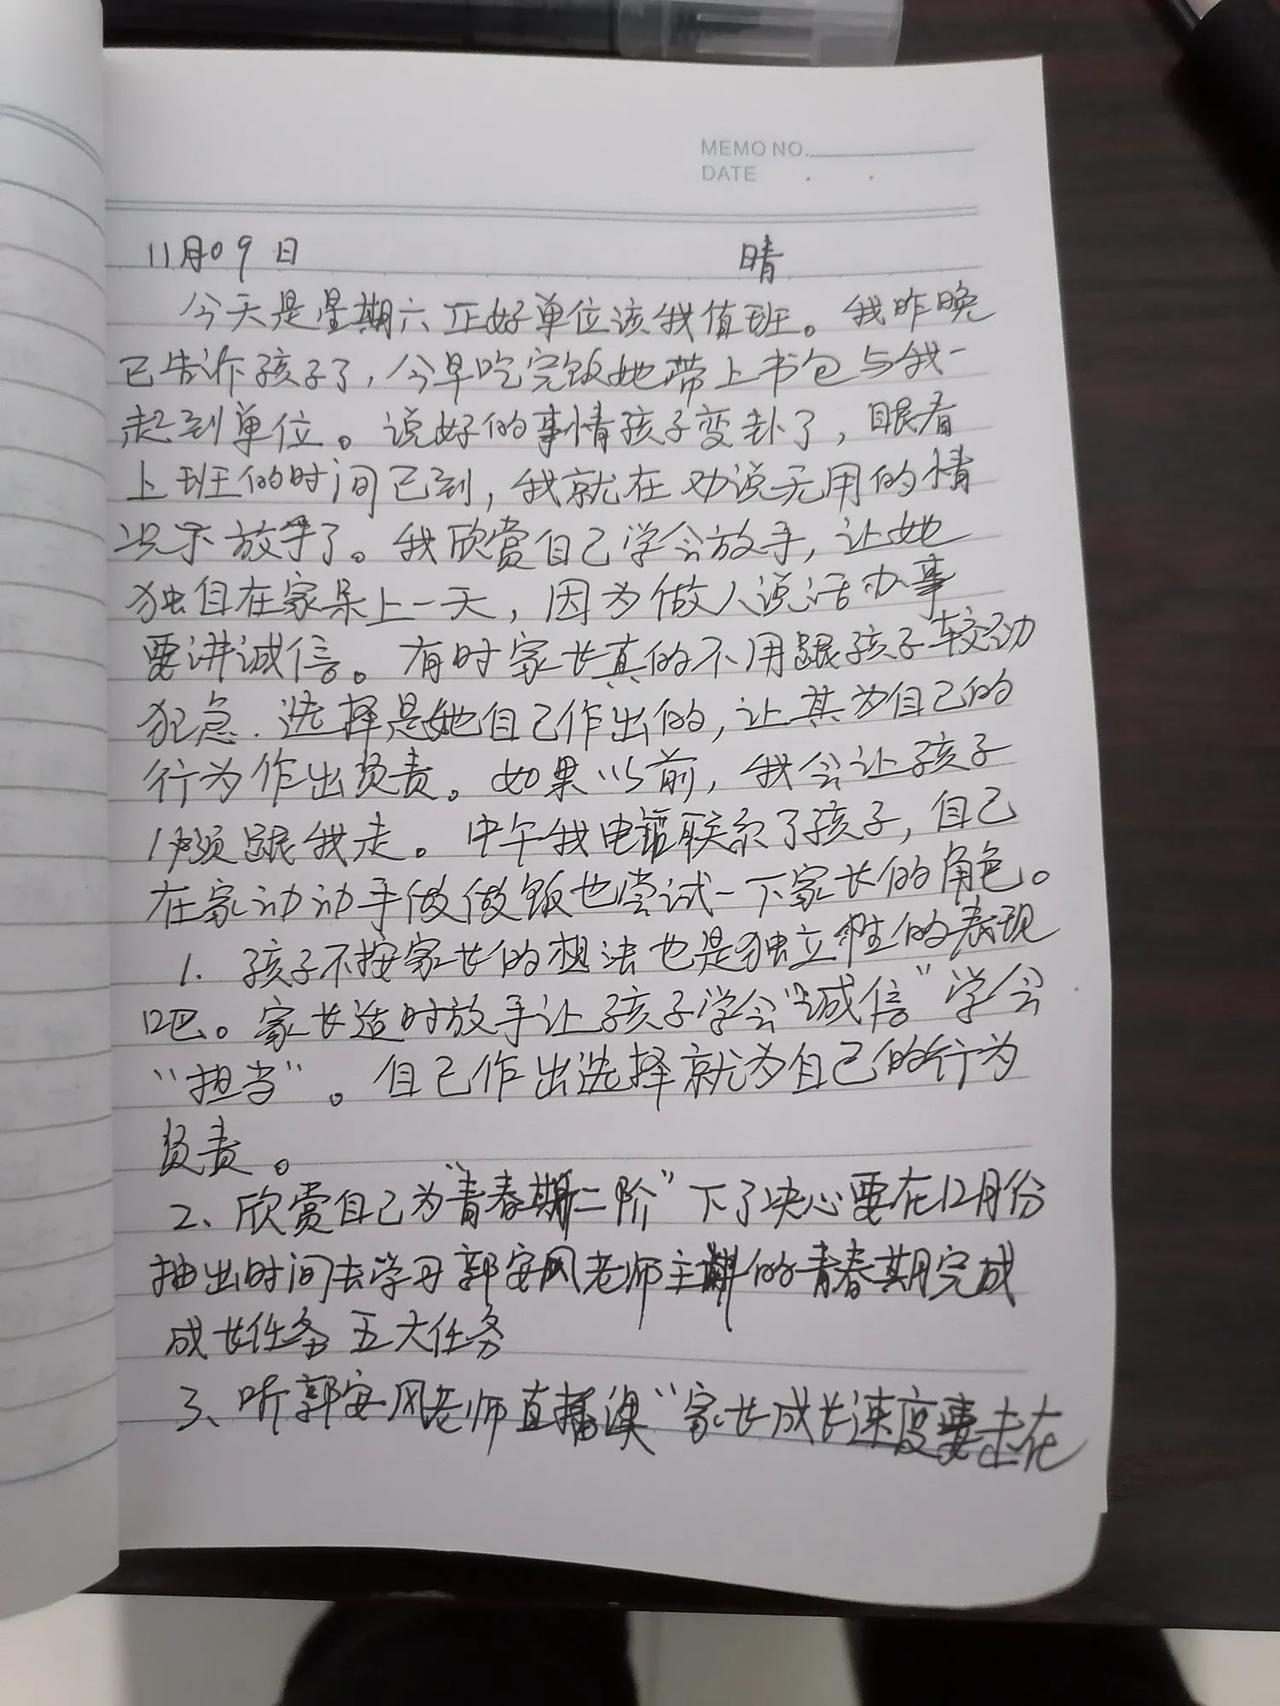 MEMO NO.
DATE . .
11月09日 晴
今天是星期六正好单位该我值班。我昨晚
已告诉孩子了,今早吃完饭她带上书包与我一
起到单位。说好的事情孩子变卦了,眼看
上班的时间已到,我就在劝说无用的情
况下放手了。我欣赏自己学会放手,让她
独自在家呆上一天,因为做人说话办事
要讲诚信。有时家长真的不用跟孩子较劲
犯急.选择是她自己作出的,让其为自己的
行为作出负责。如果以前,我会让孩子
必须跟我走。中午我电话联系了孩子,自己
在家动动手做做饭也尝试一下家长的角色。
1. 孩子不按家长的想法也是独立性的表现
吧。家长适时放手让孩子学会“诚信”学会
“担当”。自己作出选择就为自己的行为
负责。
2、欣赏自己为“青春期二阶”下了决心要在12月份
抽出时间去学习郭安风老师主讲的青春期完成
成长任务五大任务
3、听郭安风老师直播课“家长成长速度要走在